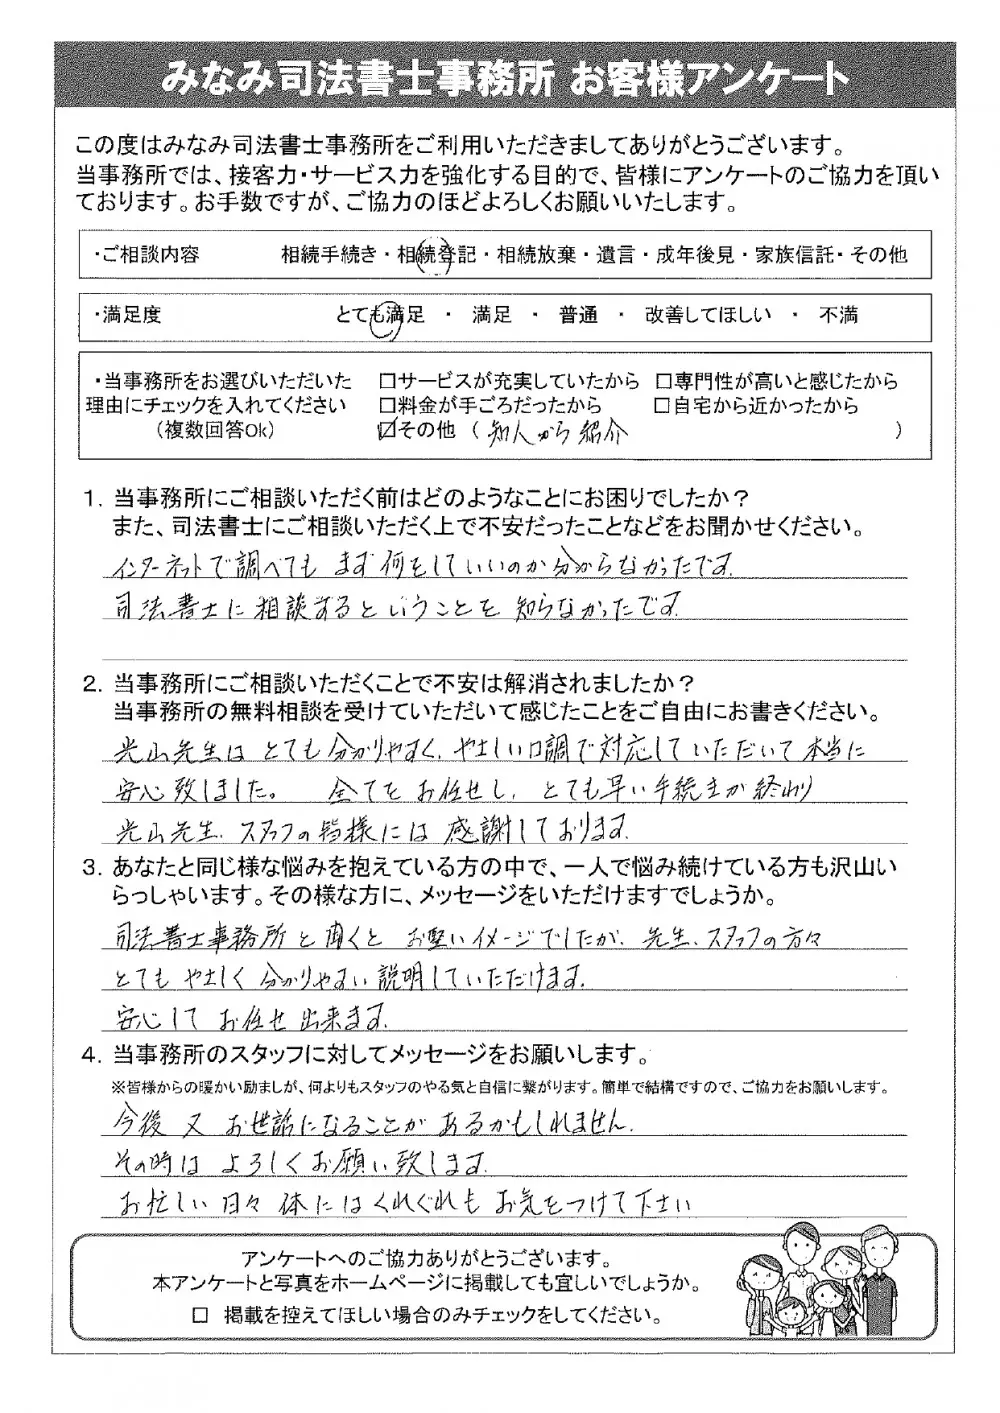 みなみ司法書士事務所 お客様アンケート
この度はみなみ司法書士事務所をご利用いただきましてありがとうございます。
当事務所では、接客力・サービス力を強化する目的で、皆様にアンケートのご協力を頂い
ております。お手数ですが、ご協力のほどよろしくお願いいたします。
・ご相談内容 相続手続き・相続登記・相続放棄・遺言・成年後見・家族信託・その他
・満足度 とても満足 ・ 満足 ・ 普通 ・ 改善してほしい ・ 不満
・当事務所をお選びいただいた □サービスが充実していたから □専門性が高いと感じたから
理由にチェックを入れてください □料金が手ごろだったから □自宅から近かったから
（複数回答Ok） ☑その他 （ 知人から紹介 ）
1. 当事務所にご相談いただく前はどのようなことにお困りでしたか？
また、司法書士にご相談いただく上で不安だったことなどをお聞かせください。
インターネットで調べても まず何をしていいのか分からなかったです。
司法書士に相談するということを知らなかったです。
2. 当事務所にご相談いただくことで不安は解消されましたか？
当事務所の無料相談を受けていただいて感じたことをご自由にお書きください。
光山先生は とても分かりやすく、やさしい口調で対応していただいて本当に
安心致しました。 全てをお任せし、とても早い手続きが終わり
光山先生、スタッフの皆様には感謝しております。
3. あなたと同じ様な悩みを抱えている方の中で、一人で悩み続けている方も沢山い
らっしゃいます。その様な方に、メッセージをいただけますでしょうか。
司法書士事務所と聞くと お堅いイメージでしたが、先生、スタッフの方々
とても やさしく 分かりやすい説明していただけます。
安心して お任せ出来ます。
4. 当事務所のスタッフに対してメッセージをお願いします。
※皆様からの暖かい励ましが、何よりもスタッフのやる気と自信に繋がります。簡単で結構ですので、ご協力をお願いします。
今後 又 お世話になることが あるかもしれません。
その時は よろしくお願い致します。
お忙しい日々 体にはくれぐれも お気をつけて下さい
アンケートへのご協力ありがとうございます。
本アンケートと写真をホームページに掲載しても宜しいでしょうか。
□ 掲載を控えてほしい場合のみチェックをしてください。